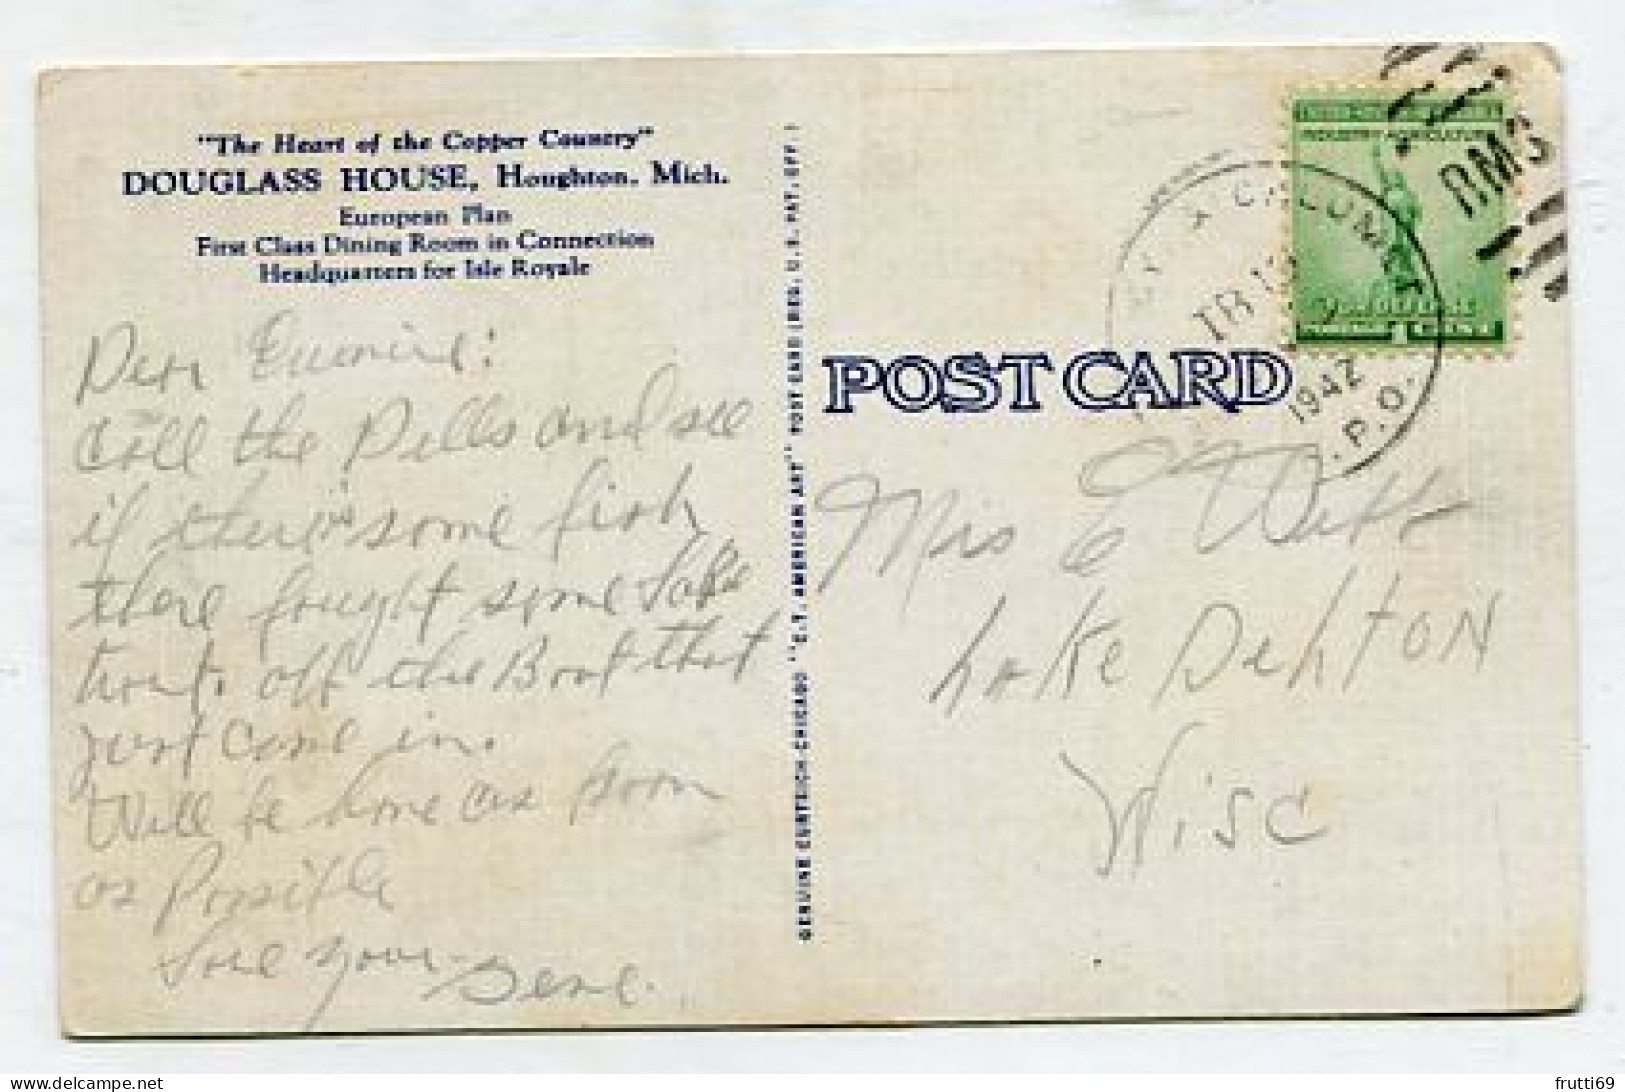 "The Heart of the Copper Country"
DOUGLASS HOUSE, Houghton, Mich.
European Plan
First Class Dining Room in Connection
Headquarters for Isle Royale
Dear
call the Dells and see
if there is some fish
there fought some Lake
trout. off the Boat that
just came in.
Will be home as soon
as Possible
Love your
Gene.
GENUINE CURTEICH-CHICAGO "C.T. AMERICAN ART" POST CARD (REG. U.S. PAT. OFF.)
POST CARD
INDUSTRY AGRICULTURE
FOR DEFENSE
1 CENT
CALUMET
TR 1
1942
R.P.O.
RMS
Mrs E Witt
Lake Delton
Wisc
frutti69